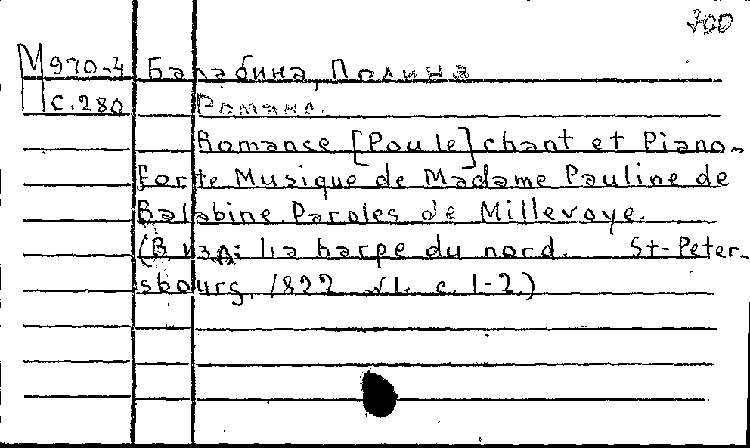 300
М 970-4 Балабина, Полина
П с.280 Романс.
Romanse [Poule] chant et Piano-
forte Musique de Madame Pauline de
Balabine Paroles de Millevoye.
(В изд: La harpe du nord. St-Peter-
sbourg, 1822 №1. с. 1-2.)